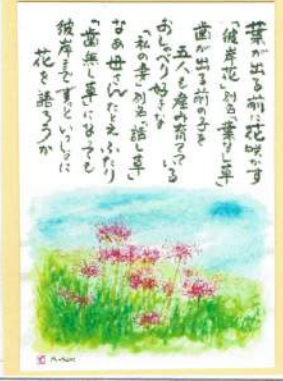 葉が出る前に花咲かす
「彼岸花」別名「葉なし草」
歯が出る前の子を
五人も産み育てている
おしゃべり好きな
「私の妻」別名「話し草」
なあ母さんたとえふたり
「歯無し草」になっても
彼岸までずっといっしょに
花を語ろうか